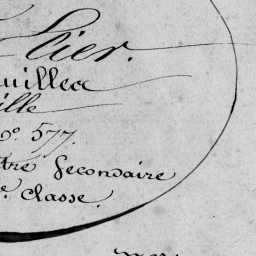 Lier.
uillea
ille
o. 577.
tre secondaire
e. classe.